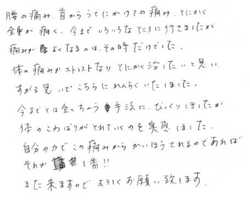 腰の痛み、首からうでにかけての痛み、とにかく
全身が痛く、今までいろいろな所に行きましたが
痛みが良くなるのは、その時だけでした。
体の痛みがストレスなり とにかく治したいと思い
すがる思いでこちらにれんらくいたしました。
今までとは全くちがう手法に、びっくりしましたが
体のこわばりがとれていくのを実感しました。
自分の力でこの痛みからかいほうされるのであれば
それが 1番!!
また来ますので よろしくお願い致します。